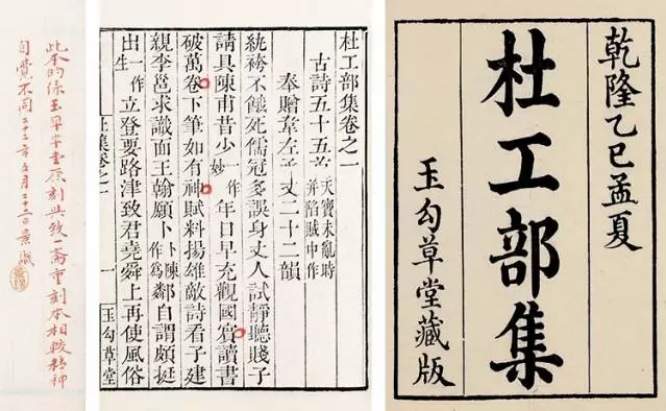 乾隆乙巳孟夏
杜工部集
玉勾草堂藏版
杜工部集卷之一
古詩五十五首 天寶未亂時
并陷賊中作
奉贈韋左丞丈二十二韻
紈袴不餓死儒冠多誤身丈人試靜聽賤子
請具陳甫昔少一作妙年日早充觀國賓讀書
破萬卷下筆如有神賦料揚雄敵詩看子建
親李邕求識面王翰願卜卜陳作為鄰自謂頗挺
出一作生立登要路津致君堯舜上再使風俗
杜集卷之一 一 玉勾草堂
此本的係玉勾草堂原刻與致一齋重刻本相較精神
自覺不同